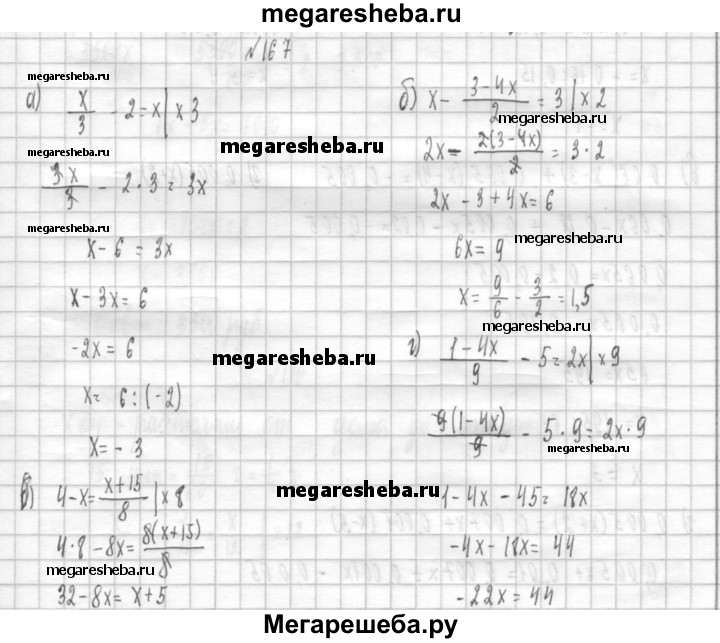 megaresheba.ru
№167
megaresheba.ru
а) x/3 - 2 = x | x 3
megaresheba.ru
3x/3 - 2·3 = 3x
megaresheba.ru
x - 6 = 3x
x - 3x = 6
-2x = 6
x = 6 : (-2)
x = - 3
в) 4 - x = x+15/8 | x 8
4·8 - 8x = 8(x+15)/8
megaresheba.ru
32 - 8x = x + 5
megaresheba.ru
megaresheba.ru
megaresheba.ru
б) x - 3-4x/2 = 3 | x 2
megaresheba.ru
2x - 2(3-4x)/2 = 3·2
2x - 3 + 4x = 6
megaresheba.ru
6x = 9
x = 9/6 - 3/2 = 1,5
megaresheba.ru
г) 1-4x/9 - 5 = 2x | x 9
9(1-4x)/9 - 5·9 = 2x·9
megaresheba.ru
1 - 4x - 45 = 18x
-4x - 18x = 44
-22x = 44
Мегарешеба.ру